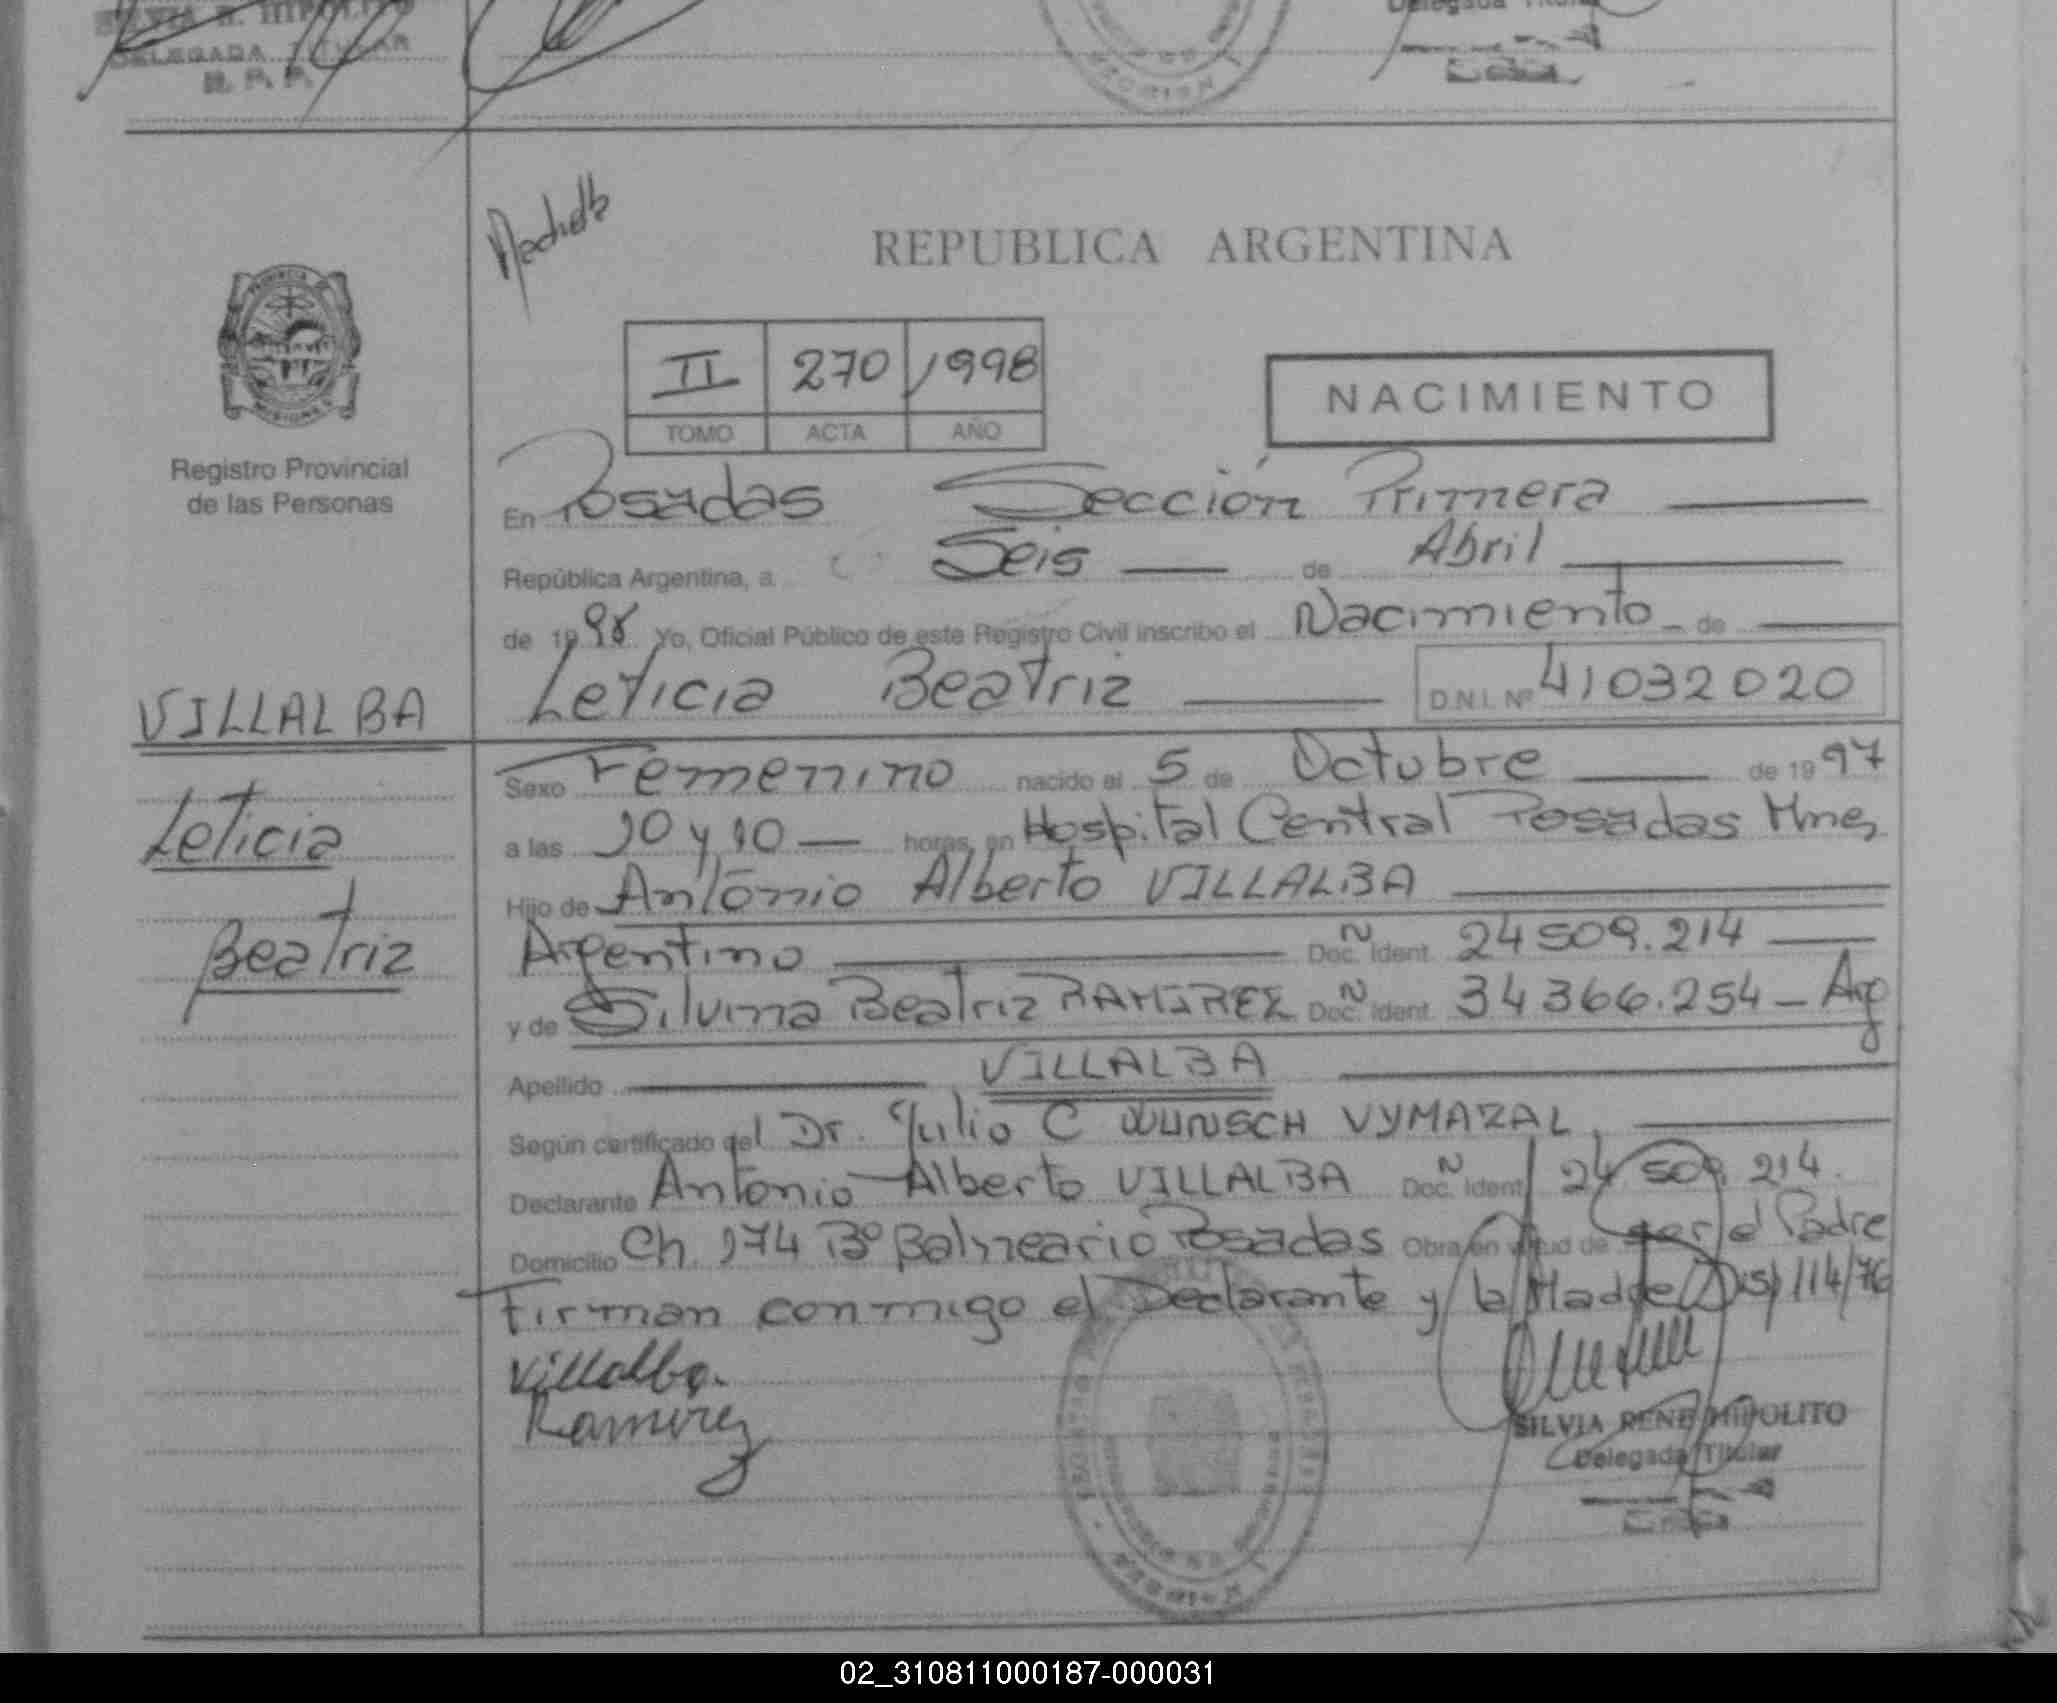 DELEGADA TITULAR
R. P. P.
Delegada Titular
REPUBLICA ARGENTINA
II 270 1998
TOMO ACTA AÑO
NACIMIENTO
PROVINCIA DE
MISIONES
Registro Provincial
de las Personas
En Posadas Sección Primera
República Argentina, a Seis de Abril
de 1998 Yo, Oficial Público de este Registro Civil inscribo el Nacimiento de
Leticia Beatriz D.N.I. Nº 41032020
VILLALBA
Leticia
Beatriz
Sexo Femenino nacido el 5 de Octubre de 1997
a las 10 y 10 horas, en Hospital Central Posadas Mnes
Hijo de Antonio Alberto VILLALBA
Argentino Doc. Ident. 24509.214
y de Silvina Beatriz RAMIREZ Doc. Ident. 34366.254 - Arg
Apellido VILLALBA
Según certificado del Dr. Julio C WUNSCH VYMAZAL
Declarante Antonio Alberto VILLALBA Doc. Ident. 24 509. 214.
Domicilio Ch. 174 Bº Balneario Posadas Obra en virtud de ser el Padre
Firman conmigo el Declarante y la Madre Disp 114/76
Villalba.
Ramirez
SILVIA RENE HIPOLITO
Delegada Titular
02_310811000187-000031